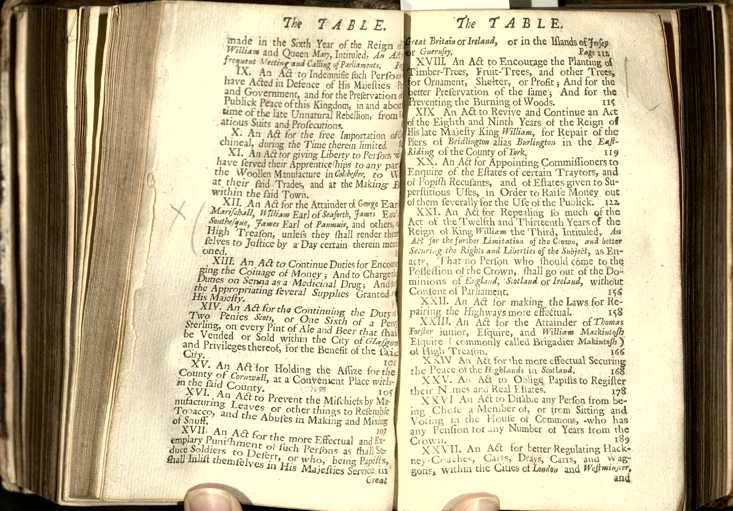 The TABLE.
made in the Sixth Year of the Reign of
William and Queen Mary, Intituled, An Act
frequent Meeting and Calling of Parliaments.
IX. An Act to Indemnifie such Persons
have Acted in Defence of His Majesties
and Government, and for the Preservation of
Publick Peace of this Kingdom, in and about
time of the late Unnatural Rebellion, from
atious Suits and Prosecutions.
X. An Act for the free Importation of
chineal, during the Time therein limited.
XI. An Act for giving Liberty to Persons
have served their Apprenticeships to any part
the Woollen Manufacture in Colchester, to
at their said Trades, and at the Making
within the said Town.
XII. An Act for the Attainder of George Earl
Marischall, William Earl of Seaforth, James Earl
Southesque, James Earl of Panmuir, and others,
High Treason, unless they shall render them
selves to Justice by a Day certain therein
oned.
XIII. An Act to Continue Duties for Encour
ging the Coinage of Money; And to Charge
Duties on Senna as a Medicinal Drug; And
the Appropriating several Supplies Granted
His Majesty.
XIV. An Act for the Continuing the Duty
Two Penies Scots, or One Sixth of a
Sterling, on every Pint of Ale and Beer that shall
be Vended or Sold within the City of Glasgow
and Privileges thereof, for the Benefit of the said
City.
XV. An Act for Holding the Assize for the
County of Cornwall, at a Convenient Place with-
in the said County. 105
XVI. An Act to Prevent the Mischiefs by Ma-
nufacturing Leaves or other things to Resemble
Tobacco, and the Abuses in Making and Mixing
of Snuff. 107
XVII. An Act for the more Effectual and Ex-
emplary Punishment of such Persons as shall Se-
duce Soldiers to Desert, or who, being Papists,
shall Inlist themselves in His Majesties Service in
Great
The TABLE.
Great Britain or Ireland, or in the Islands of Jersey
or Guernsey. Page 112
XVIII. An Act to Encourage the Planting of
Timber-Trees, Fruit-Trees, and other Trees,
for Ornament, Shelter, or Profit; And for the
better Preservation of the same; And for the
Preventing the Burning of Woods. 115
XIX An Act to Revive and Continue an Act
of the Eighth and Ninth Years of the Reign of
His late Majesty King William, for Repair of the
Piers of Bridlington alias Burlington in the East-
Riding of the County of York. 119
XX. An Act for Appointing Commissioners to
Enquire of the Estates of certain Traytors, and
of Popish Recusants, and of Estates given to Su-
perstitious Uses, in Order to Raise Money out
of them severally for the Use of the Publick. 122
XXI. An Act for Repealing so much of the
Act of the Twelfth and Thirteenth Years of the
Reign of King William the Third, Intituled, An
Act for the further Limitation of the Crown, and better
Securing the Rights and Liberties of the Subject, as En-
acts, That no Person who should come to the
Possession of the Crown, shall go out of the Do-
minions of England, Scotland or Ireland, without
Consent of Parliament. 156
XXII. An Act for making the Laws for Re-
pairing the Highways more effectual. 158
XXIII. An Act for the Attainder of Thomas
Forster Junior, Esquire, and William Mackintosh
Esquire (commonly called Brigadier Makintosh)
of High Treason. 166
XXIV An Act for the more effectual Securing
the Peace of the Highlands in Scotland. 168
XXV. An Act to Oblige Papists to Register
their Names and Real Estates. 178
XXVI An Act to Disable any Person from be-
ing Chose a Member of, or from Sitting and
Voting in the House of Commons, who has
any Pension for any Number of Years from the
Crown. 189
XXVII. An Act for better Regulating Hack-
ney-Coaches, Carts, Drays, Carrs, and Wag-
gons, within the Cities of London and Westminster,
and